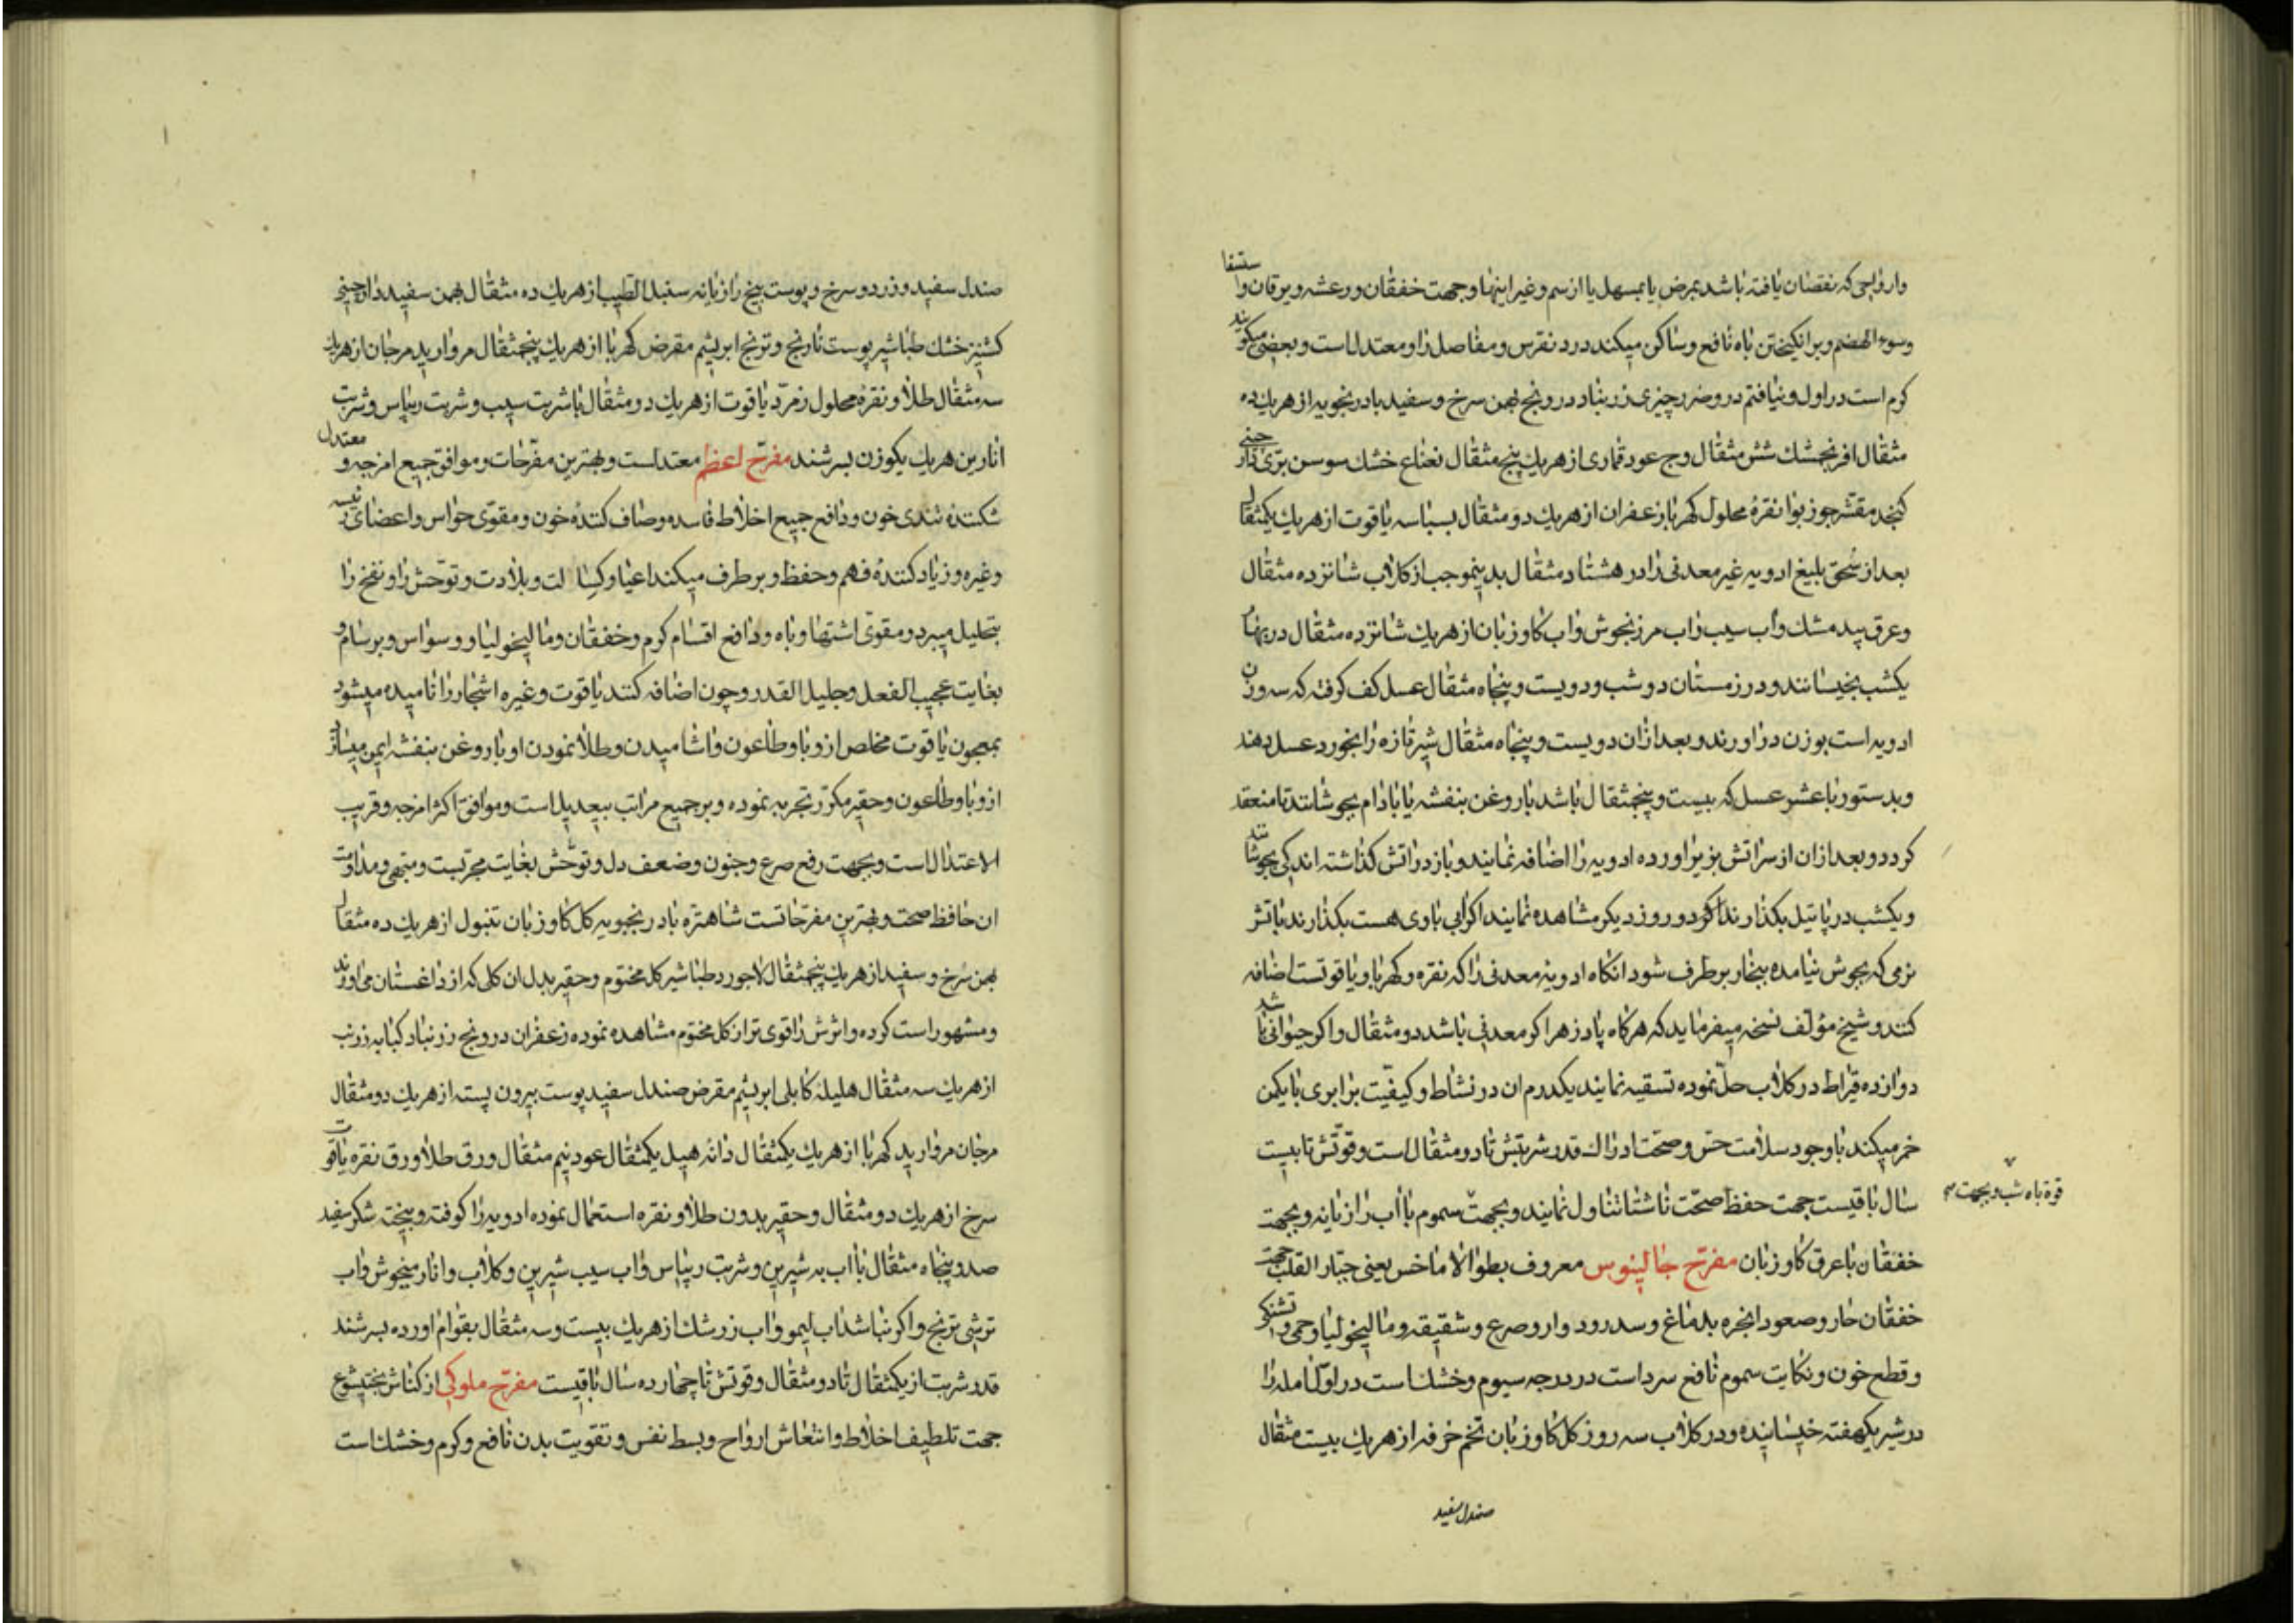 وارواحی که نقصان یافته باشد بمرض یا بمسهل یا از سم و غیر اینها و جهت خفقان و رعشه و یرقان و استسقا
وسوء الهضم و برانکیختن باه نافع و ساکن میکند درد نقرس و مفاصل را و معتدل است و بعضی میکویند
کرم است در اول و نیافتم در و ضرر چیزی زرنباد درونج بهمن سرخ و سفید بادرنجویه از هریك ده
مثقال افرنجمشك شش مثقال وج عود قماری از هریك پنج مثقال نعناع خشك سوسن بری دارچینی
کنجد مقشر جوز بوا نقرۀ محلول کهربا زعفران از هریك دو مثقال بسباسه یاقوت از هریك یکمثقال
بعد از سحق بلیغ ادویه غیر معدنی را در هشتاد مثقال بدینموجب از کلاب شانزده مثقال
وعرق بید مشك واب سیب واب مرزنجوش واب کاوزبان از هریك شانزده مثقال در بهار
یکشب بخیسانند و در زمستان دو شب و دویست و پنجاه مثقال عسل کف کرفته که سه وزن
ادویه است بوزن دراورند و بعد ازان دویست و پنجاه مثقال شیر تازه را بخورد عسل دهند
وبدستور با عشر عسل که بیست و پنجمثقال باشد باروغن بنفشه یا بادام بجوشانند تا منعقد
کردد و بعد ازان از سر اتش بزیر اورده ادویه را اضافه نمایند و باز در اتش کذاشته اندکی بجوشانند
ویکشب در پاتیل بکذارند تا کرد و روز دیکر مشاهده نمایند اکر ابی باوی هست بکذارند باتش
نرمی که بجوش نیامده ببخار برطرف شود انکاه ادویۀ معدنی را که نقره و کهربا و یاقوتست اضافه
کنند و شیخ مؤلف نسخه میفرماید که هرکاه پادزهر اکر معدنی باشد دو مثقال و اکر حیوانی باشد
دوازده قیراط در کلاب حل نموده تسقیه نمایند یکدرم ان در نشاط و کیفیت برابری با یکمن
خمر میکند باوجود سلامت حس و صحت ادراك قدر شربتش تا دو مثقال است و قوتش تا بیست
سال باقیست جهت حفظ صحت ناشتا تناول نمایند و بجهت سموم با اب رازیانه و بجهت
قوة باه شب و بجهت سم
خفقان با عرق کاوزبان مفرح جالینوس معروف بطوالاماخس یعنی جبار القلب جهت
خفقان حار و صعود ابخره بدماغ و سدر و دوار و صرع و شقیقه و مالیخولیا و حمی و تشنکی
وقطع خون و نکایت سموم نافع سرد است در درجه سیوم و خشك است در اول امله را
در شیر یکهفته خیسانیده و در کلاب سه روز کل کاوزبان تخم خرفه از هریك بیست مثقال
صندل سفید
صندل سفید و زرد و سرخ و پوست بیخ رازیانه سنبل الطیب از هریك ده مثقال بهمن سفید دارچینی
کشنیز خشك طباشیر پوست نارنج و ترنج ابریشم مقرض کهربا از هریك پنجمثقال مروارید مرجان از هریك
سه مثقال طلا و نقرۀ محلول زمرد یاقوت از هریك دو مثقال با شربت سیب و شربت ریباس و شربت
انارین هریك یکوزن بسرشند مفرح اعظم معتدلست و بهترین مفرحات و موافق جمیع امزجه و معتدل
شکنندۀ تندی خون و دافع جمیع اخلاط فاسده و صاف کنندۀ خون و مقوی حواس و اعضای رئیسه
وغیره و زیاد کنندۀ فهم و حفظ و برطرف میکند اعیا و کسالت و بلادت و توحش را و نفخ را
بتحلیل میبرد و مقوی اشتها و باه و دافع اقسام کرم و خفقان و مالیخولیا و وسواس و برسام و
بغایت عجیب الفعل و جلیل القدر و چون اضافه کنند یاقوت و غیره اشجار را نامیده میشود
بمعجون یاقوت مخلص از وبا و طاعون و اشامیدن و طلا نمودن او باروغن بنفشه ایمن میسازد
از وبا و طاعون و حقیر مکرر تجربه نموده و بر جمیع مراتب بیعدیل است و موافق اکثر امزجه و قریب
الاعتدال است و بجهت رفع صرع و جنون و ضعف دل و توحش بغایت مجربست و منجح و مداومت
ان حافظ صحت و بهترین مفرحاتست شاهتره بادرنجبویه کل کاوزبان تنبول از هریك ده مثقال
بهمن سرخ و سفید از هریك پنجمثقال لاجورد طباشیر کل مختوم و حقیر بدل ان کلی که از داغستان می اورند
ومشهور است کرده و اثرش را قوی تر از کل مختوم مشاهده نموده زعفران درونج زرنباد کبابه زرنب
از هریك سه مثقال هلیلۀ کابلی ابریشم مقرض صندل سفید پوست بیرون پسته از هریك دو مثقال
مرجان مروارید کهربا از هریك یکمثقال دانۀ هیل یکمثقال عود نیم مثقال ورق طلا ورق نقره یاقوت
سرخ از هریك دو مثقال و حقیر بدون طلا و نقره استعمال نموده ادویه را کوفته و بیخته شکر سفید
صد و پنجاه مثقال با اب به شیرین و شربت ریباس و اب سیب شیرین و کلاب و انار میخوش و اب
ترشی ترنج و اکر نباشد اب لیمو و اب زرشك از هریك بیست و سه مثقال بقوام اورده بسرشند
قدر شربت از یکمثقال تا دو مثقال و قوتش تا چهارده سال باقیست مفرح ملوکی از کناش بختیشوع
جهت تلطیف اخلاط و انتعاش ارواح و بسط نفس و تقویت بدن نافع و کرم و خشك است